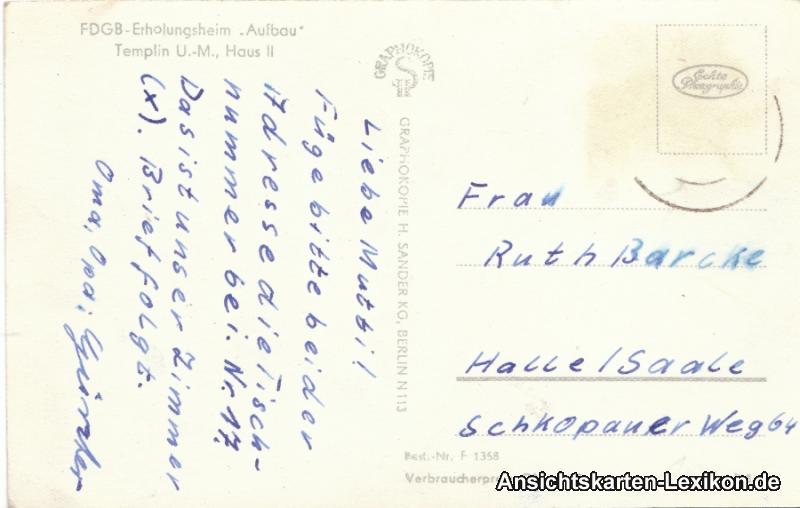 FDGB-Erholungsheim „Aufbau"
Templin U.-M., Haus II
Liebe Mutti!
Füge bitte bei der
Adresse die Tisch-
nummer bei. Nr. 17.
Das ist unser Zimmer
(x). Brief folgt.
Oma, Opa,
GRAPHOKOPIE
GRAPHOKOPIE H. SANDER KG, BERLIN N 113
Echte
Photographie
Frau
Ruth Barcke
Halle/Saale
Schkopauer Weg 64
Best.-Nr. F 1358
Ansichtskarten-Lexikon.de